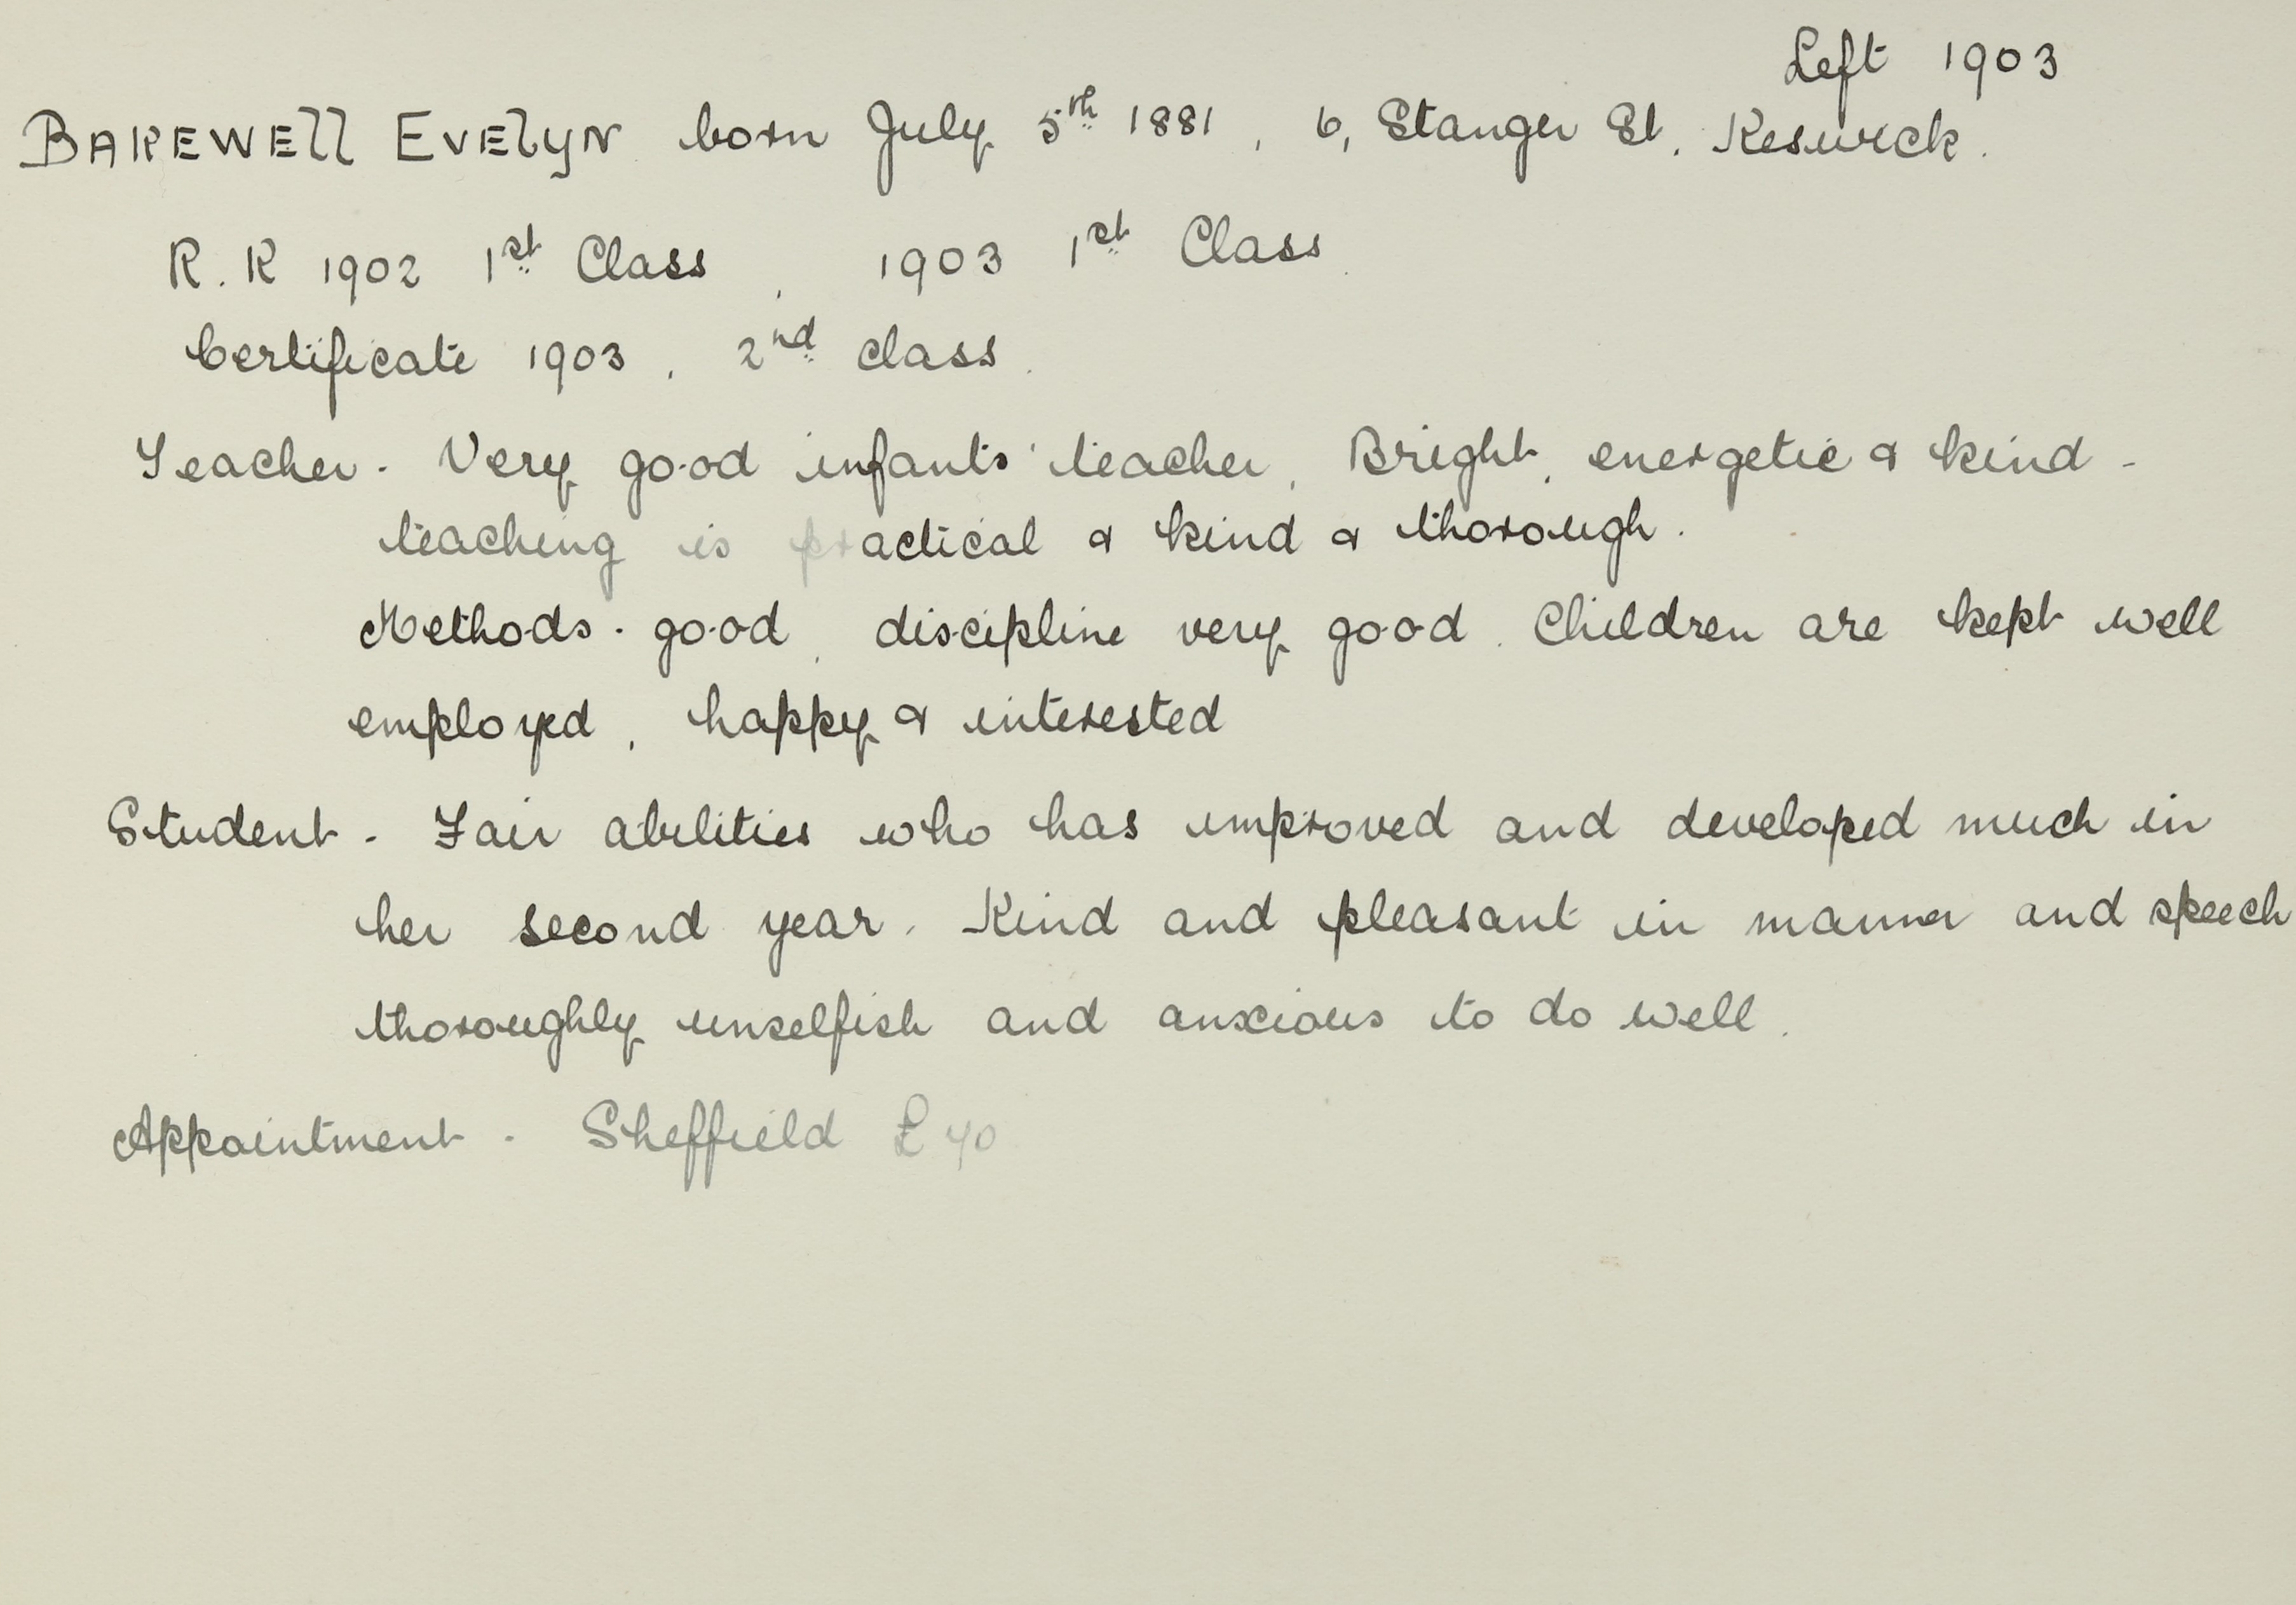 Left 1903
BAKEWELL EVELYN born July 5th 1881, 6, Stanger St. Keswick.
R.K 1902 1st Class, 1903 1st Class.
Certificate 1903, 2nd class.
Teacher - Very good infants' teacher, Bright, energetic & kind -
teaching is practical & kind & thorough.
Methods - good, discipline very good. Children are kept well
employed, happy & interested
Student - Fair abilities who has improved and developed much in
her second year. Kind and pleasant in manner and speech
thoroughly unselfish and anxious to do well.
Appointment - Sheffield £40